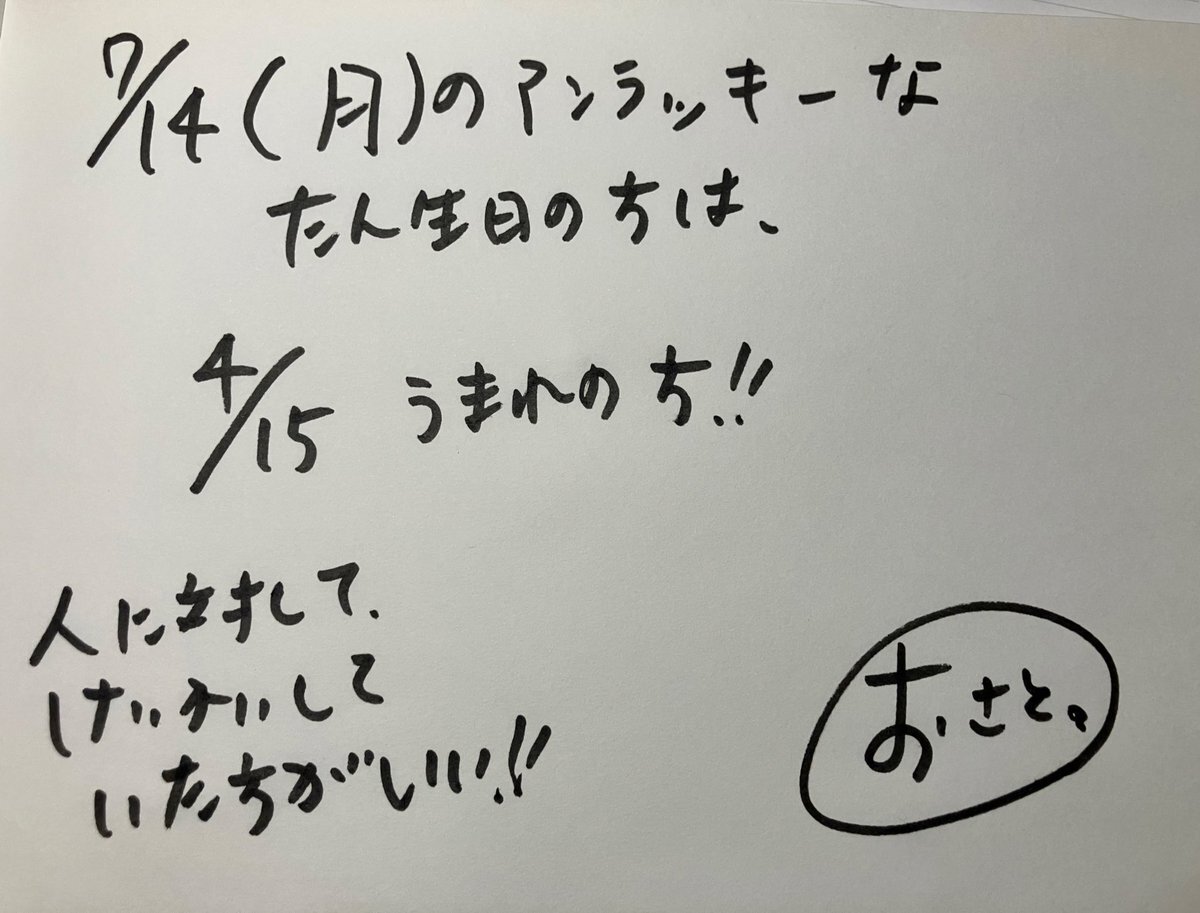 7/14(月)のアンラッキーな
たん生日の方は、
4/15 うまれの方!!
人に対して、
けいかいして
いた方がいい!!
おさと。